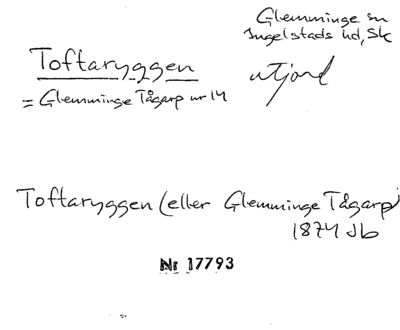 Glemminge sn
Ingelstads hd, Sk
Toftaryggen
= Glemminge Tågarp nr 14
utjord
Toftaryggen (eller Glemminge Tågarp)
1874 Jb
Nr 17793